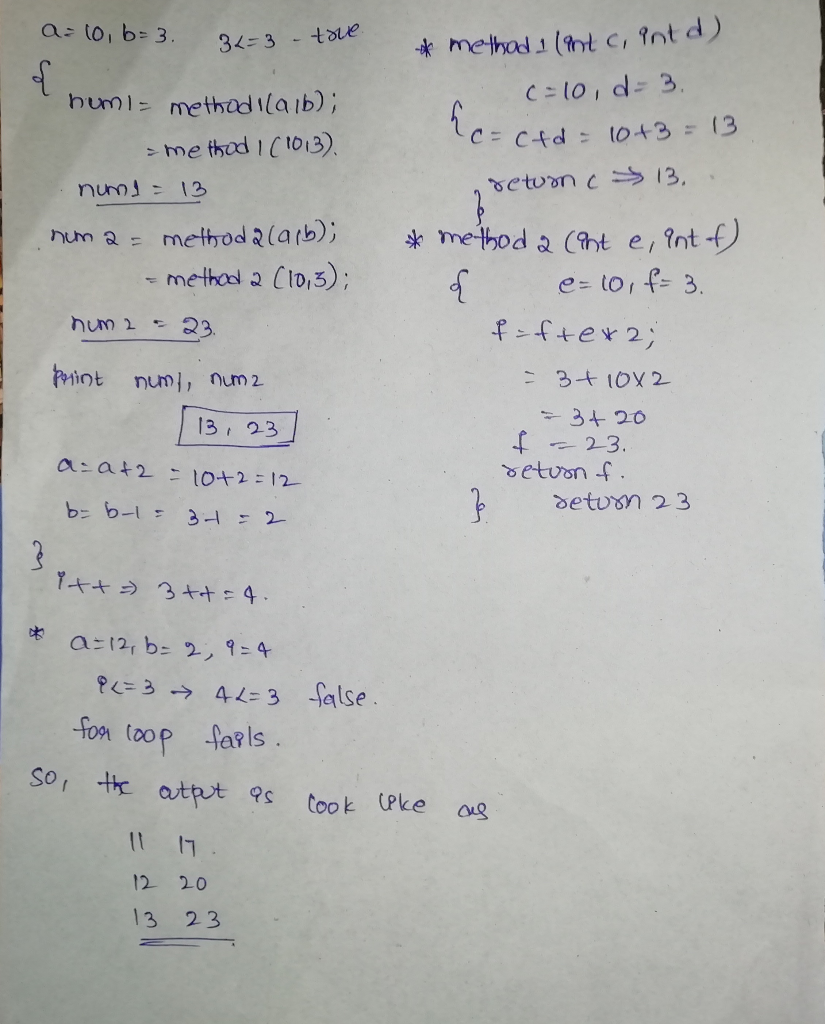 a=10, b=3. 3<=3 - true
{
num1= method1(a,b);
=method 1 (10,3).
num1 = 13
num 2 = method2(a,b);
= method 2 (10,3);
num 2 = 23.
Print num1, num2
13, 23
a=a+2 = 10+2=12
b= b-1 = 3-1 = 2
}
i++ => 3++=4.
* a=12, b= 2, i=4
i<=3 → 4<=3 false.
for loop fails.
So, the output is look like as
11 17.
12 20
13 23
* method 1 (int c, int d)
c=10, d= 3.
{ c= c+d = 10+3 = 13
return c => 13.
}
* method 2 (int e, int f)
{ e=10, f= 3.
f=f+e*2;
= 3+10x2
= 3+20
f = 23.
return f.
} return 23